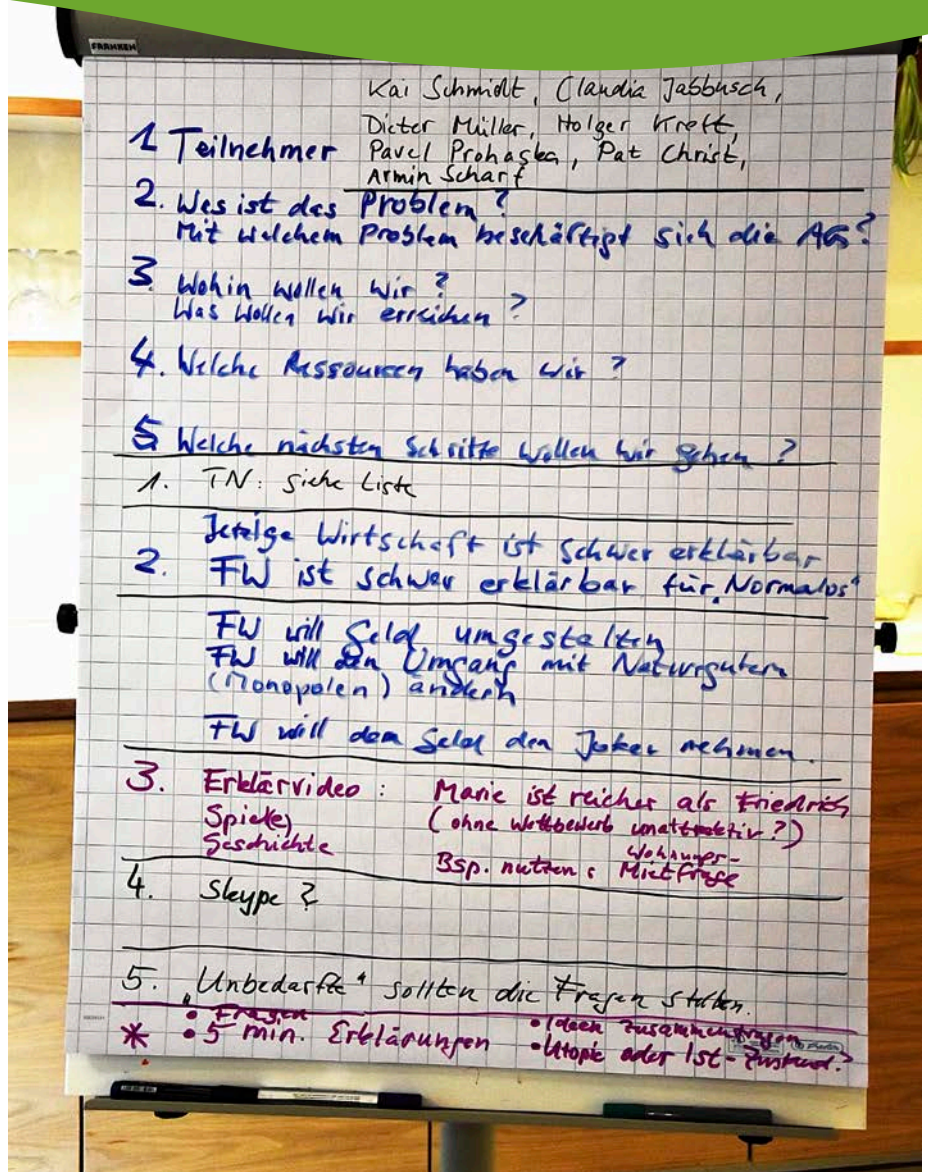 FRANKEN
Kai Schmidt, Claudia Jabbusch,
Dieter Müller, Holger Kreft,
1 Teilnehmer Pavel Prohaska, Pat Christ,
Armin Scharf
2. Was ist das Problem?
Mit welchem Problem beschäftigt sich die AG?
3 Wohin wollen wir?
Was wollen wir erreichen?
4. Welche Ressourcen haben wir?
5 Welche nächsten Schritte wollen wir gehen?
1. TN: siehe Liste
Jetzige Wirtschaft ist schwer erklärbar
2. FW ist schwer erklärbar für „Normalos“
FW will Geld umgestalten
FW will den Umgang mit Naturgütern
(Monopolen) ändern
FW will dem Geld den Joker nehmen.
3. Erklärvideo: Marie ist reicher als Friedrich
Spiele, (ohne Wettbewerb unattraktiv?)
Geschichte
Wohnungs-
Bsp. nutzen: Mietfrage
4. Skype?
5. „Unbedarfte“ sollten die Fragen stellen.
• Fragen • Ideen zusammentragen
* • 5 min. Erklärungen • Utopie oder Ist-Zustand?